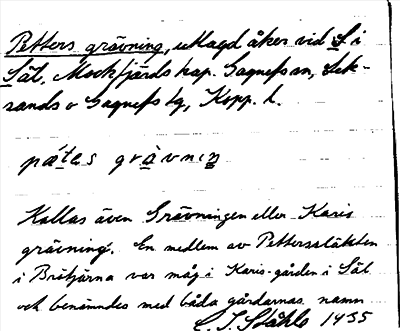 Petters grävning, utlagd åker vid S i
Säl, Mockfjärds kap. Gagnefs sn, Lek-
sands o Gagnefs tg, Kopp. l.
pátes gràvniŋ
Kallas även Grävningen eller Karis
grävning. En medlem av Petterssläkten
i Bråtjärna var måg i Karis-gården i Säl
och benämndes med båda gårdarnas namn
C. I. Ståhle 1935